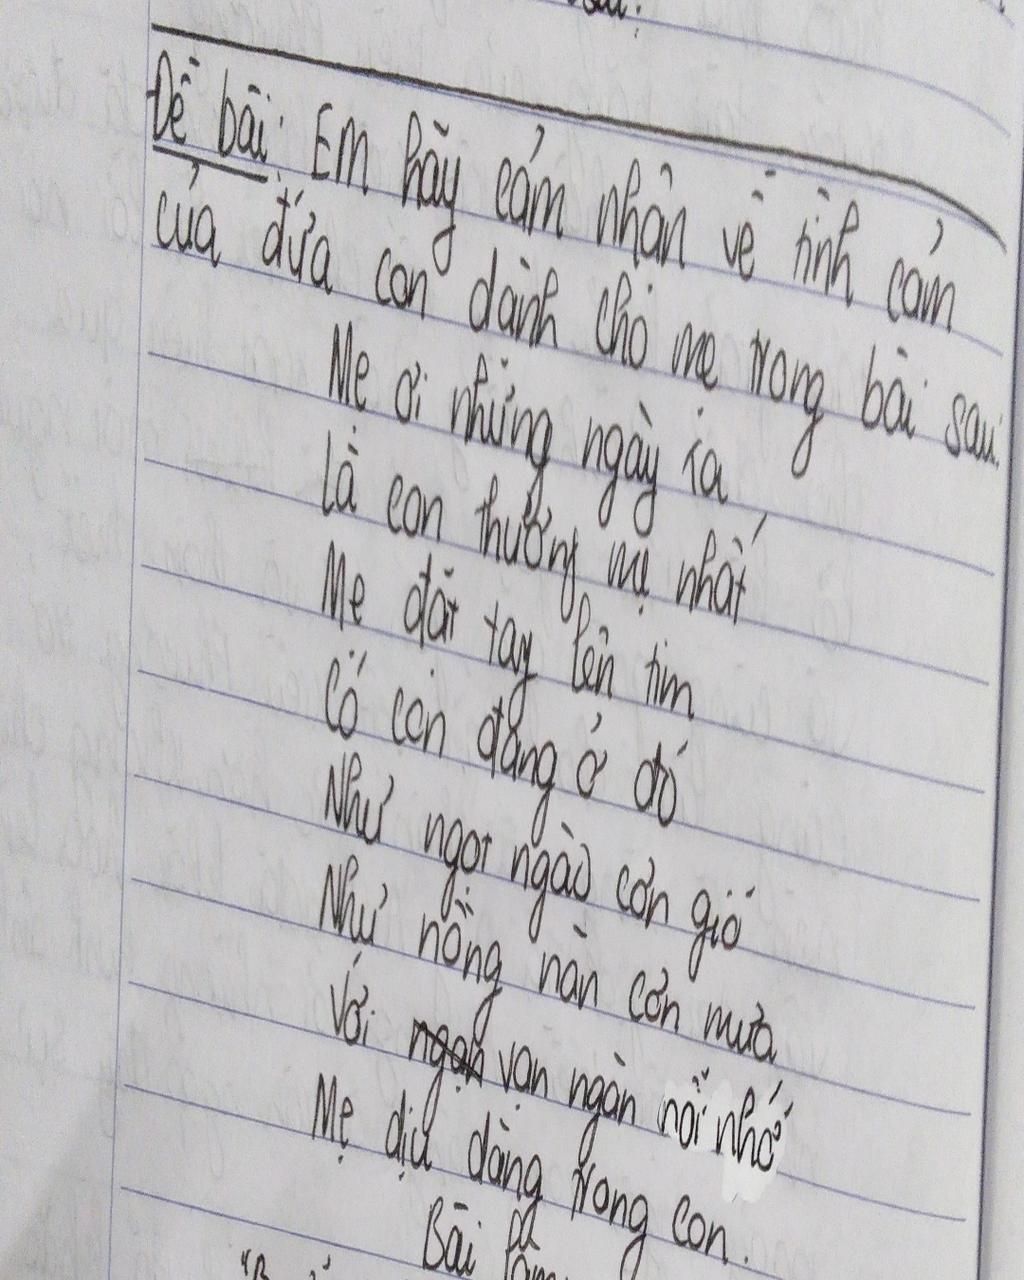 Đề bài: Em hãy cảm nhận về tình cảm
của đứa con dành cho mẹ trong bài sau:
Mẹ ơi những ngày xa
Là con thương mẹ nhất
Mẹ đặt tay lên tim
Có con đang ở đó
Như ngọt ngào cơn gió
Như nồng nàn cơn mưa
Với vạn ngàn nỗi nhớ
Mẹ dịu dàng trong con.
Bài làm